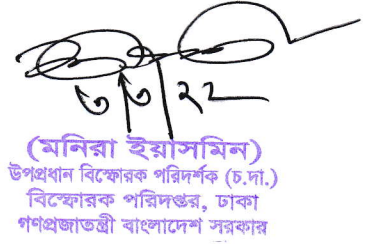 ৩/৩/২২
(মনিরা ইয়াসমিন)
উপপ্রধান বিস্ফোরক পরিদর্শক (চ.দা.)
বিস্ফোরক পরিদপ্তর, ঢাকা
গণপ্রজাতন্ত্রী বাংলাদেশ সরকার